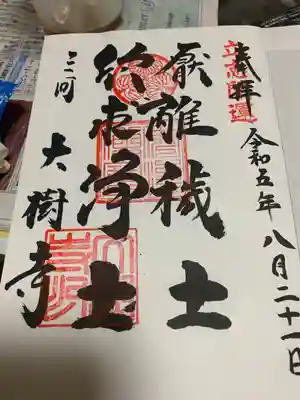 奉拝
立志開運
令和五年八月二十一日
厭離穢土
欣求浄土
三河
大樹寺